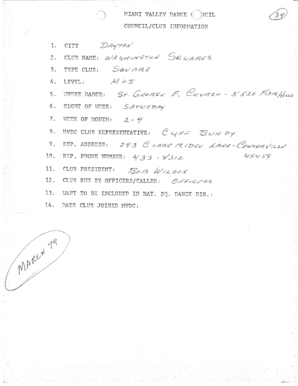 MIAMI VALLEY DANCE COUNCIL
COUNCIL/CLUB INFORMATION
34
1. CITY DAYTON
2. CLUB NAME: WASHINGTON SQUARES
3. TYPE CLUB: SQUARE
4. LEVEL: M+I
5. WHERE DANCE: ST. GEORGE E. CHURCH - 5520 FAR HILLS
6. NIGHT OF WEEK: SATURDAY
7. WEEK OF MONTH: 2-4
8. MVDC CLUB REPRESENTATIVE: CLIFF BUNDY
9. REP. ADDRESS: 293 CLARERIDGE LANE - CENTERVILLE
10. REP. PHONE NUMBER: 433-9312 45459
11. CLUB PRESIDENT: BOB WILCOX
12. CLUB RUN BY OFFICERS/CALLER: OFFICERS
13. WANT TO BE INCLUDED IN NAT. SQ. DANCE DIR.:
14. DATE CLUB JOINED MVDC:
MARCH 79